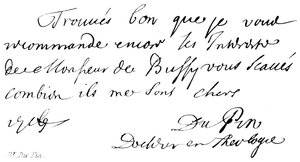 Trouués bon que je vous
recommande encore les Interets
de Monsieur de Bussy vous scaués
combien ils me sont chers
Du Pin
Docteur en theologie
Du Pin.